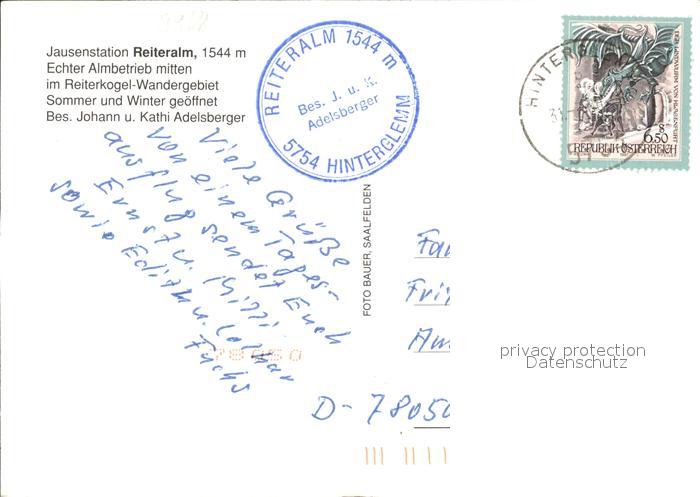 Jausenstation Reiteralm, 1544 m
Echter Almbetrieb mitten
im Reiterkogel-Wandergebiet
Sommer und Winter geöffnet
Bes. Johann u. Kathi Adelsberger
REITERALM 1544 m
Bes. J. u. K.
Adelsberger
5754 HINTERGLEMM
HINTERGL
31.
6.50
REPUBLIK ÖSTERREICH
Viele Grüße
von einem Tages-
ausflug sendet Euch
Ernst u. Mitzi
sowie Edith u. Lothar
Fuchs
FOTO BAUER, SAALFELDEN
Fam
Fri
Am
D-78050
78050
privacy protection
Datenschutz